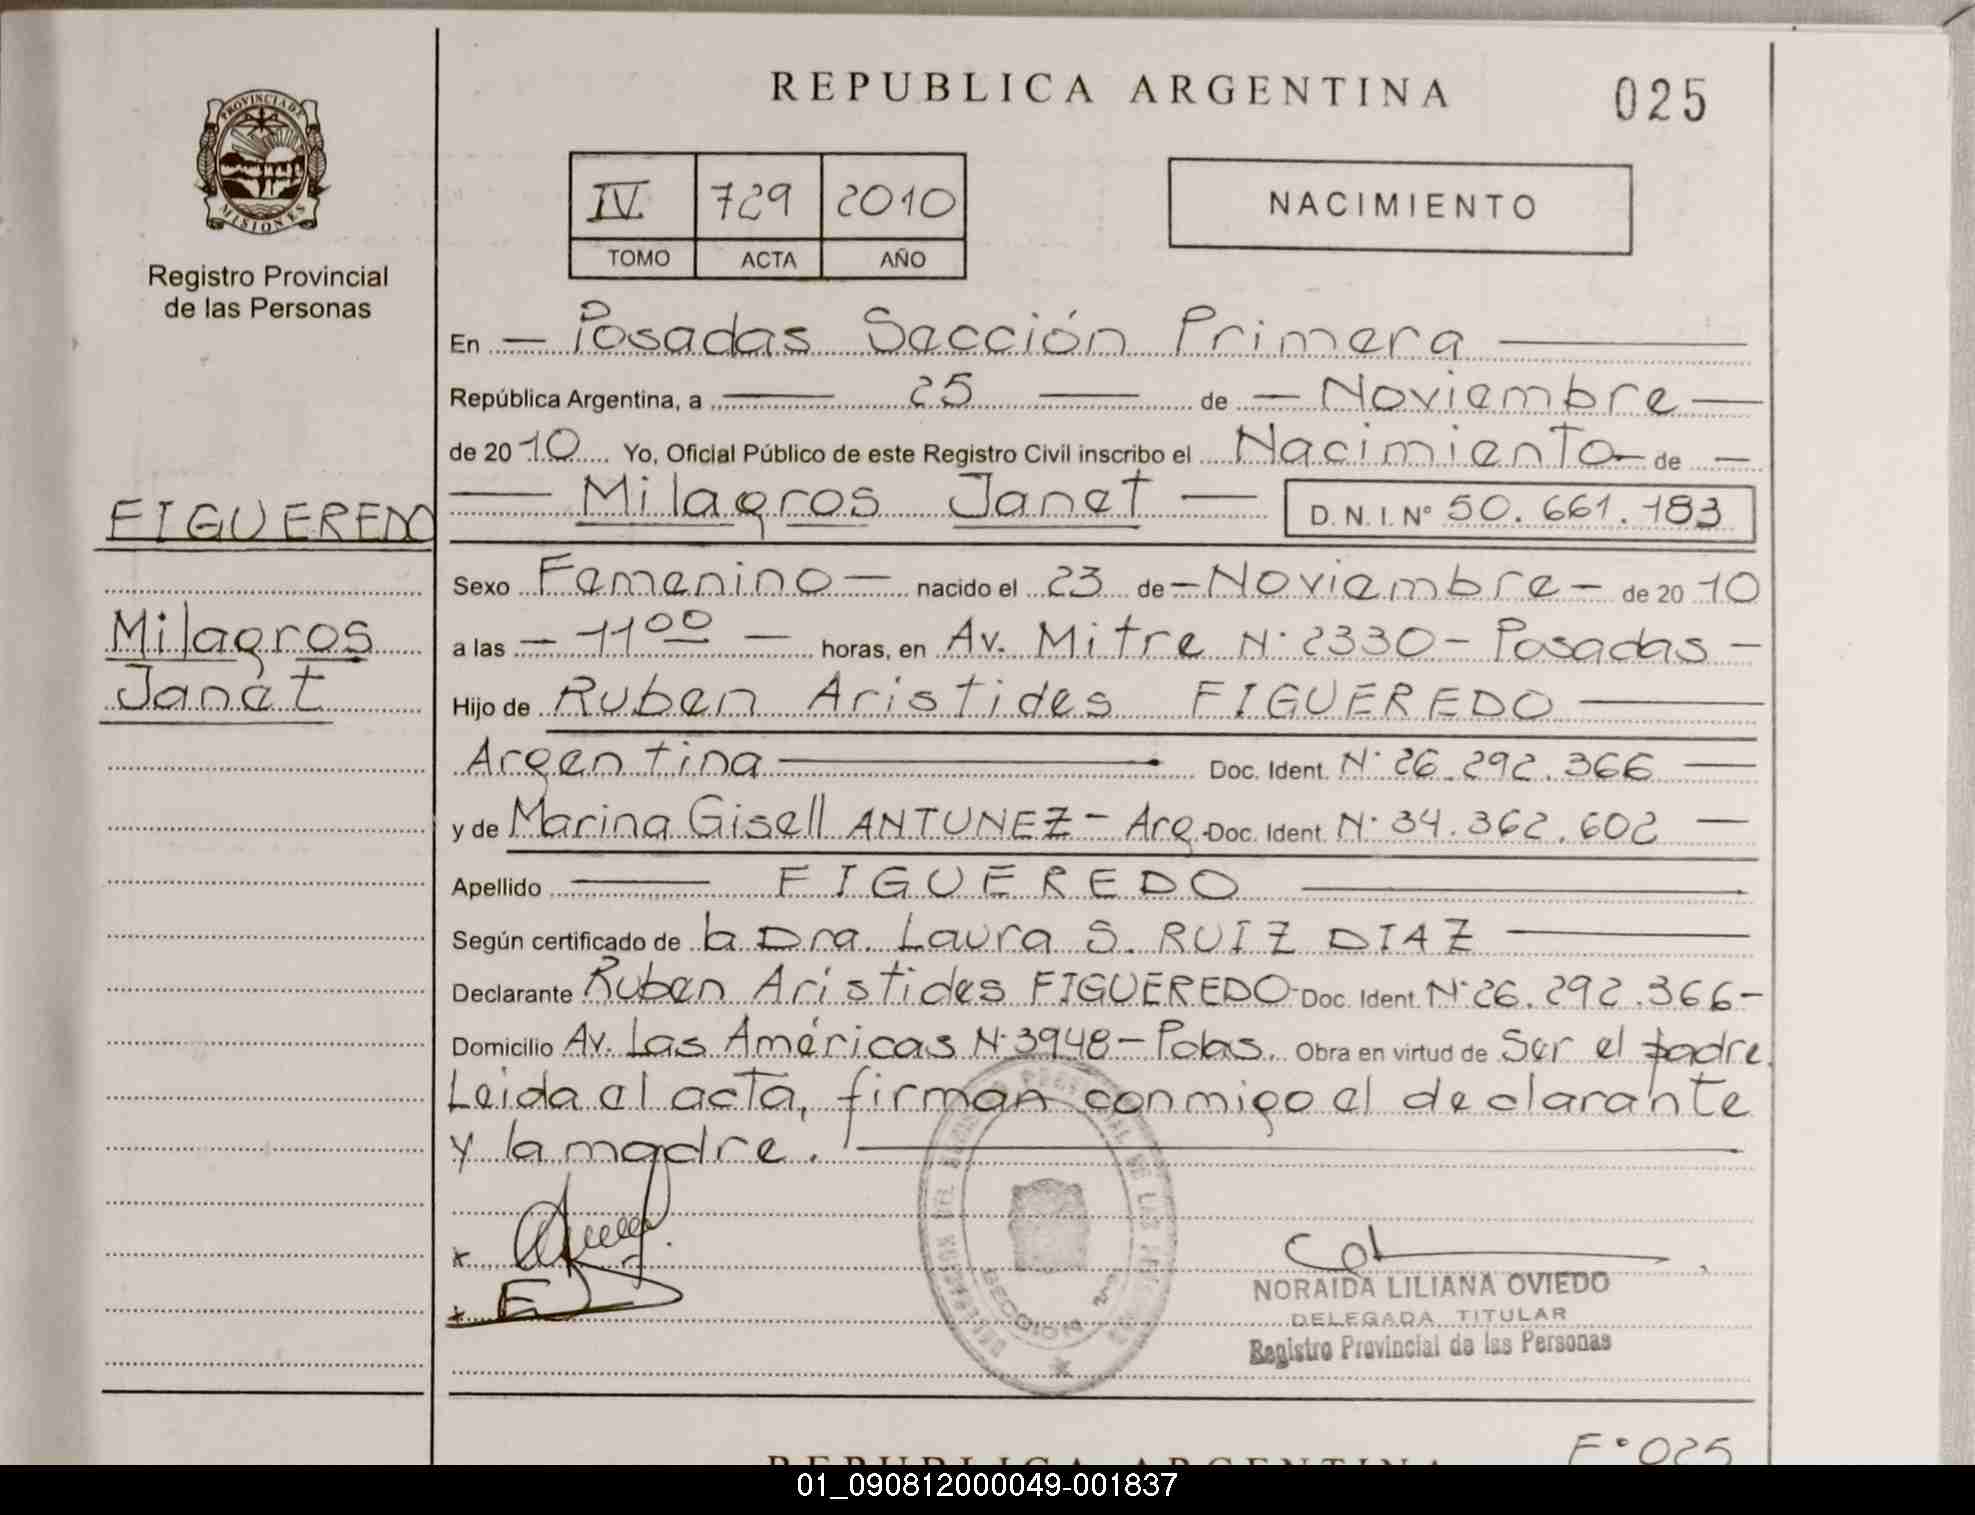 REPUBLICA ARGENTINA
025
PROVINCIA DE
MISIONES
Registro Provincial
de las Personas
IV 729 2010
TOMO ACTA AÑO
NACIMIENTO
En — Posadas Sección Primera —
República Argentina, a — 25 — de — Noviembre —
de 2010 Yo, Oficial Público de este Registro Civil inscribo el Nacimiento — de —
— Milagros Janet — D.N.I. N° 50.661.183
FIGUEREDO
Milagros
Janet
Sexo Femenino — nacido el 23 de — Noviembre — de 2010
a las — 11 00 — horas, en Av. Mitre N° 2330 - Posadas -
Hijo de Ruben Aristides FIGUEREDO —
Argentina — Doc. Ident. N° 26.292.366 —
y de Marina Gisell ANTUNEZ - Arg. Doc. Ident. N° 34.362.602 —
Apellido — FIGUEREDO —
Según certificado de la Dra. Laura S. RUIZ DIAZ —
Declarante Ruben Aristides FIGUEREDO - Doc. Ident. N° 26.292.366 -
Domicilio Av. Las Américas N° 3948 - Pdas. Obra en virtud de Ser el padre.
Leida el acta, firman conmigo el declarante
y la madre. —
SECCION
NORAIDA LILIANA OVIEDO
DELEGADA TITULAR
Registro Provincial de las Personas
F° 025
REPUBLICA ARGENTINA
01_090812000049-001837